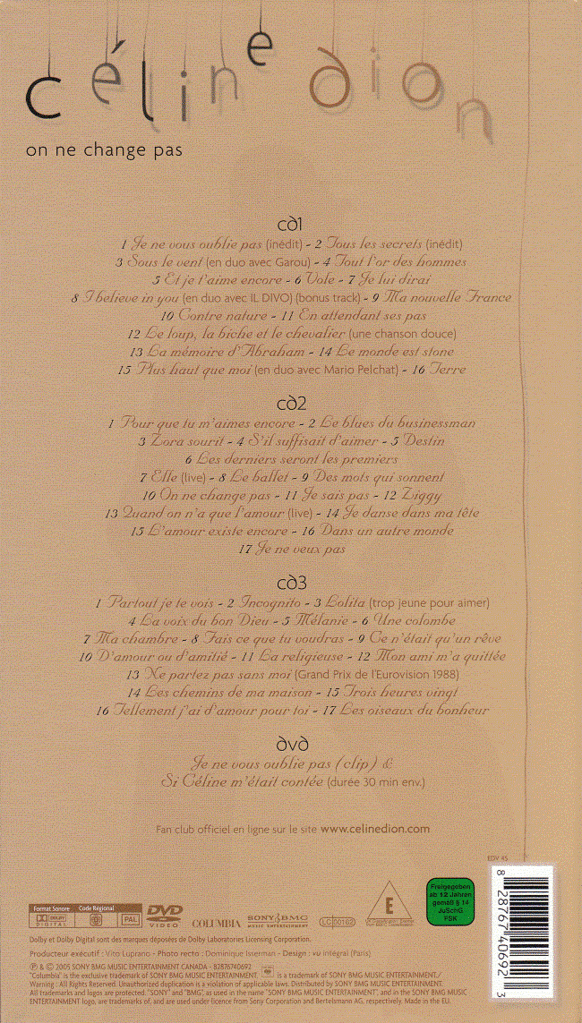 céline dion
on ne change pas
cd1
1 Je ne vous oublie pas (inédit) - 2 Tous les secrets (inédit)
3 Sous le vent (en duo avec Garou) - 4 Tout l'or des hommes
5 Et je t'aime encore - 6 Vole - 7 Je lui dirai
8 I believe in you (en duo avec IL DIVO) (bonus track) - 9 Ma nouvelle France
10 Contre nature - 11 En attendant ses pas
12 Le loup, la biche et le chevalier (une chanson douce)
13 La mémoire d'Abraham - 14 Le monde est stone
15 Plus haut que moi (en duo avec Mario Pelchat) - 16 Terre
cd2
1 Pour que tu m'aimes encore - 2 Le blues du businessman
3 Zora sourit - 4 S'il suffisait d'aimer - 5 Destin
6 Les derniers seront les premiers
7 Elle (live) - 8 Le ballet - 9 Des mots qui sonnent
10 On ne change pas - 11 Je sais pas - 12 Ziggy
13 Quand on n'a que l'amour (live) - 14 Je danse dans ma tête
15 L'amour existe encore - 16 Dans un autre monde
17 Je ne veux pas
cd3
1 Partout je te vois - 2 Incognito - 3 Lolita (trop jeune pour aimer)
4 La voix du bon Dieu - 5 Mélanie - 6 Une colombe
7 Ma chambre - 8 Fais ce que tu voudras - 9 Ce n'était qu'un rêve
10 D'amour ou d'amitié - 11 La religieuse - 12 Mon ami m'a quittée
13 Ne partez pas sans moi (Grand Prix de l'Eurovision 1988)
14 Les chemins de ma maison - 15 Trois heures vingt
16 Tellement j'ai d'amour pour toi - 17 Les oiseaux du bonheur
dvd
Je ne vous oublie pas (clip) &
Si Céline m'était contée (durée 30 min env.)
Fan club officiel en ligne sur le site www.celinedion.com
EDV 45
8 28767 40692 3
Format Sonore Code Régional
DOLBY DIGITAL PAL DVD VIDEO COLUMBIA SONY BMG MUSIC ENTERTAINMENT LC 00162 E
Freigegeben ab 12 Jahren gemäß § 14 JuSchG FSK
Dolby et Dolby Digital sont des marques déposées de Dolby Laboratories Licensing Corporation.
Producteur exécutif : Vito Luprano - Photo recto : Dominique Isserman - Design : vu intégral (Paris)
℗ & © 2005 SONY BMG MUSIC ENTERTAINMENT CANADA - 82876740692
"Columbia" is the exclusive trademark of SONY BMG MUSIC ENTERTAINMENT. is a trademark of SONY BMG MUSIC ENTERTAINMENT./
Warning : All Rights Reserved. Unauthorized duplication is a violation of applicable laws. Distributed by SONY BMG MUSIC ENTERTAINMENT.
All trademarks and logos are protected. "SONY" and "BMG", as used in the name "SONY BMG MUSIC ENTERTAINMENT", and in the SONY BMG MUSIC
ENTERTAINMENT logo, are trademarks of, and are used under licence from Sony Corporation and Bertelsmann AG, respectively. Made in the EU.